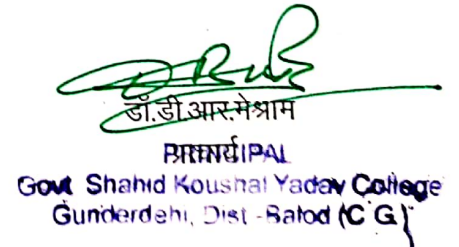 डॉ.डी.आर.मेश्राम
प्राचार्य
PRINCIPAL
Govt Shahid Koushal Yadav College
Gunderdehi, Dist -Balod (C G)